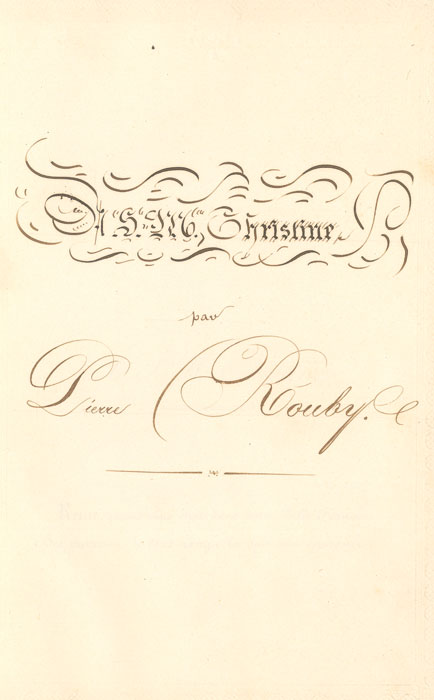 A S. M. Christine
par
Pierre Rouby.